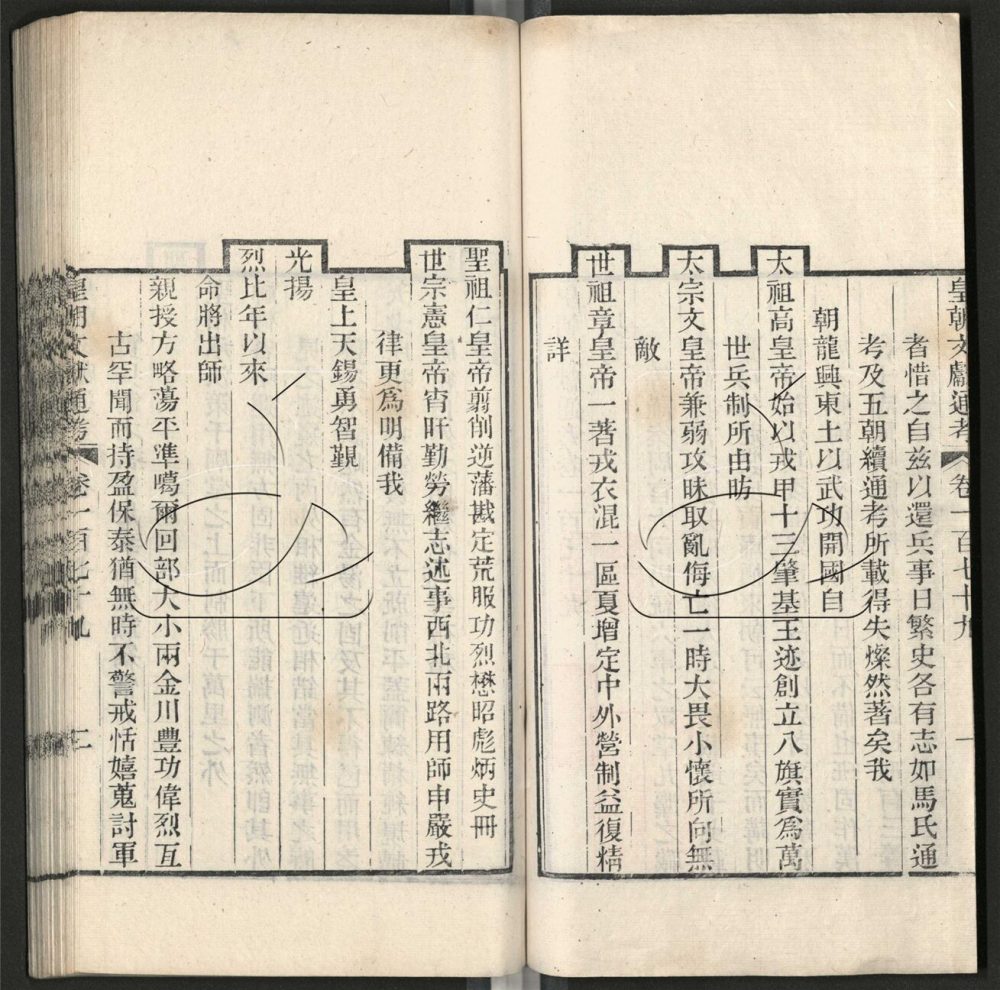 皇朝文獻通考 卷一百七十九 一
者惜之自茲以還兵事日繁史各有志如馬氏通
考及五朝續通考所載得失燦然著矣我
朝龍興東土以武功開國自
太祖高皇帝始以戎甲十三肇基王迹創立八旗實為萬
世兵制所由昉
太宗文皇帝兼弱攻昧取亂侮亡一時大畏小懷所向無
敵
世祖章皇帝一著戎衣混一區夏增定中外營制益復精
詳
聖祖仁皇帝翦削逆藩戡定荒服功烈懋昭彪炳史冊
世宗憲皇帝宵旰勤勞繼志述事西北兩路用師申嚴戎
律更為明備我
皇上天錫勇智覲
光揚
烈比年以來
命將出師
親授方略蕩平準噶爾回部大小兩金川豐功偉烈亙
古罕聞而持盈保泰猶無時不警戒恬嬉蒐討軍
皇朝文獻通考 卷一百七十九 二